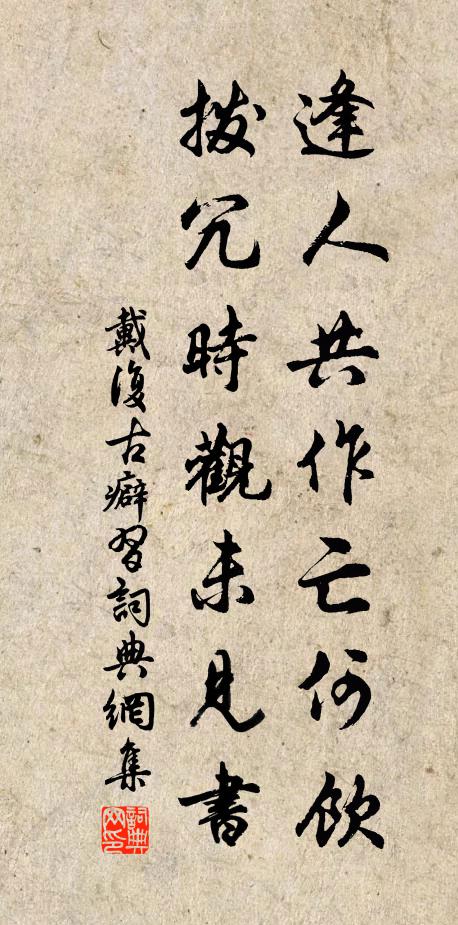 逢人共作亡何飲
撥冗時觀未見書
戴復古癖習詞典網集
詞典网印